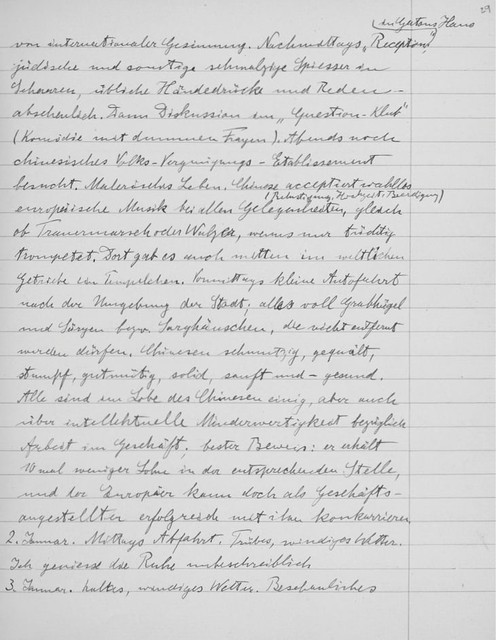 in Gatons Haus
von internationaler Gesinnung. Nachmittags „Reception",
jüdische und sonstige schmalzige Spiesser in
Scharen, übliche Händedrücke und Reden –
abscheulich. Dann Diskussion im „Question-Klub"
(Komödie mit dummen Fragen). Abends noch
chinesisches Volks-Vergnügungs-Etablissement
besucht. Malerisches Leben. Chinese acceptiert wahllos
(Beerdigung)
europäische Musik bei allen Gelegenheiten, gleich
ob Trauermarsch oder Walzer, wenns nur tüchtig
trompetet. Dort gab es auch mitten im weltlichen
Getriebe ein Tempelchen. Vormittags kleine Autofahrt
nach der Umgebung der Stadt; alles voll Grabhügel
und Särgen bezw. Sarghäuschen, die nicht entfernt
werden dürfen. Chinesen schmutzig, gequält,
stumpf, gutmütig, solid, sanft und – gesund.
Alle sind im Lobe des Chinesen einig, aber auch
über intellektuelle Minderwertigkeit bezüglich
Arbeit im Geschäft. bester Beweis: er erhält
10 mal weniger Lohn in der entsprechenden Stelle,
und der Europäer kann doch als Geschäfts-
angestellter erfolgreich mit ihm konkurrieren
2. Januar. Mittags Abfahrt. Trübes, windiges Wetter.
Ich geniesse die Ruhe unbeschreiblich
3. Januar. kaltes, windiges Wetter. Beschauliches